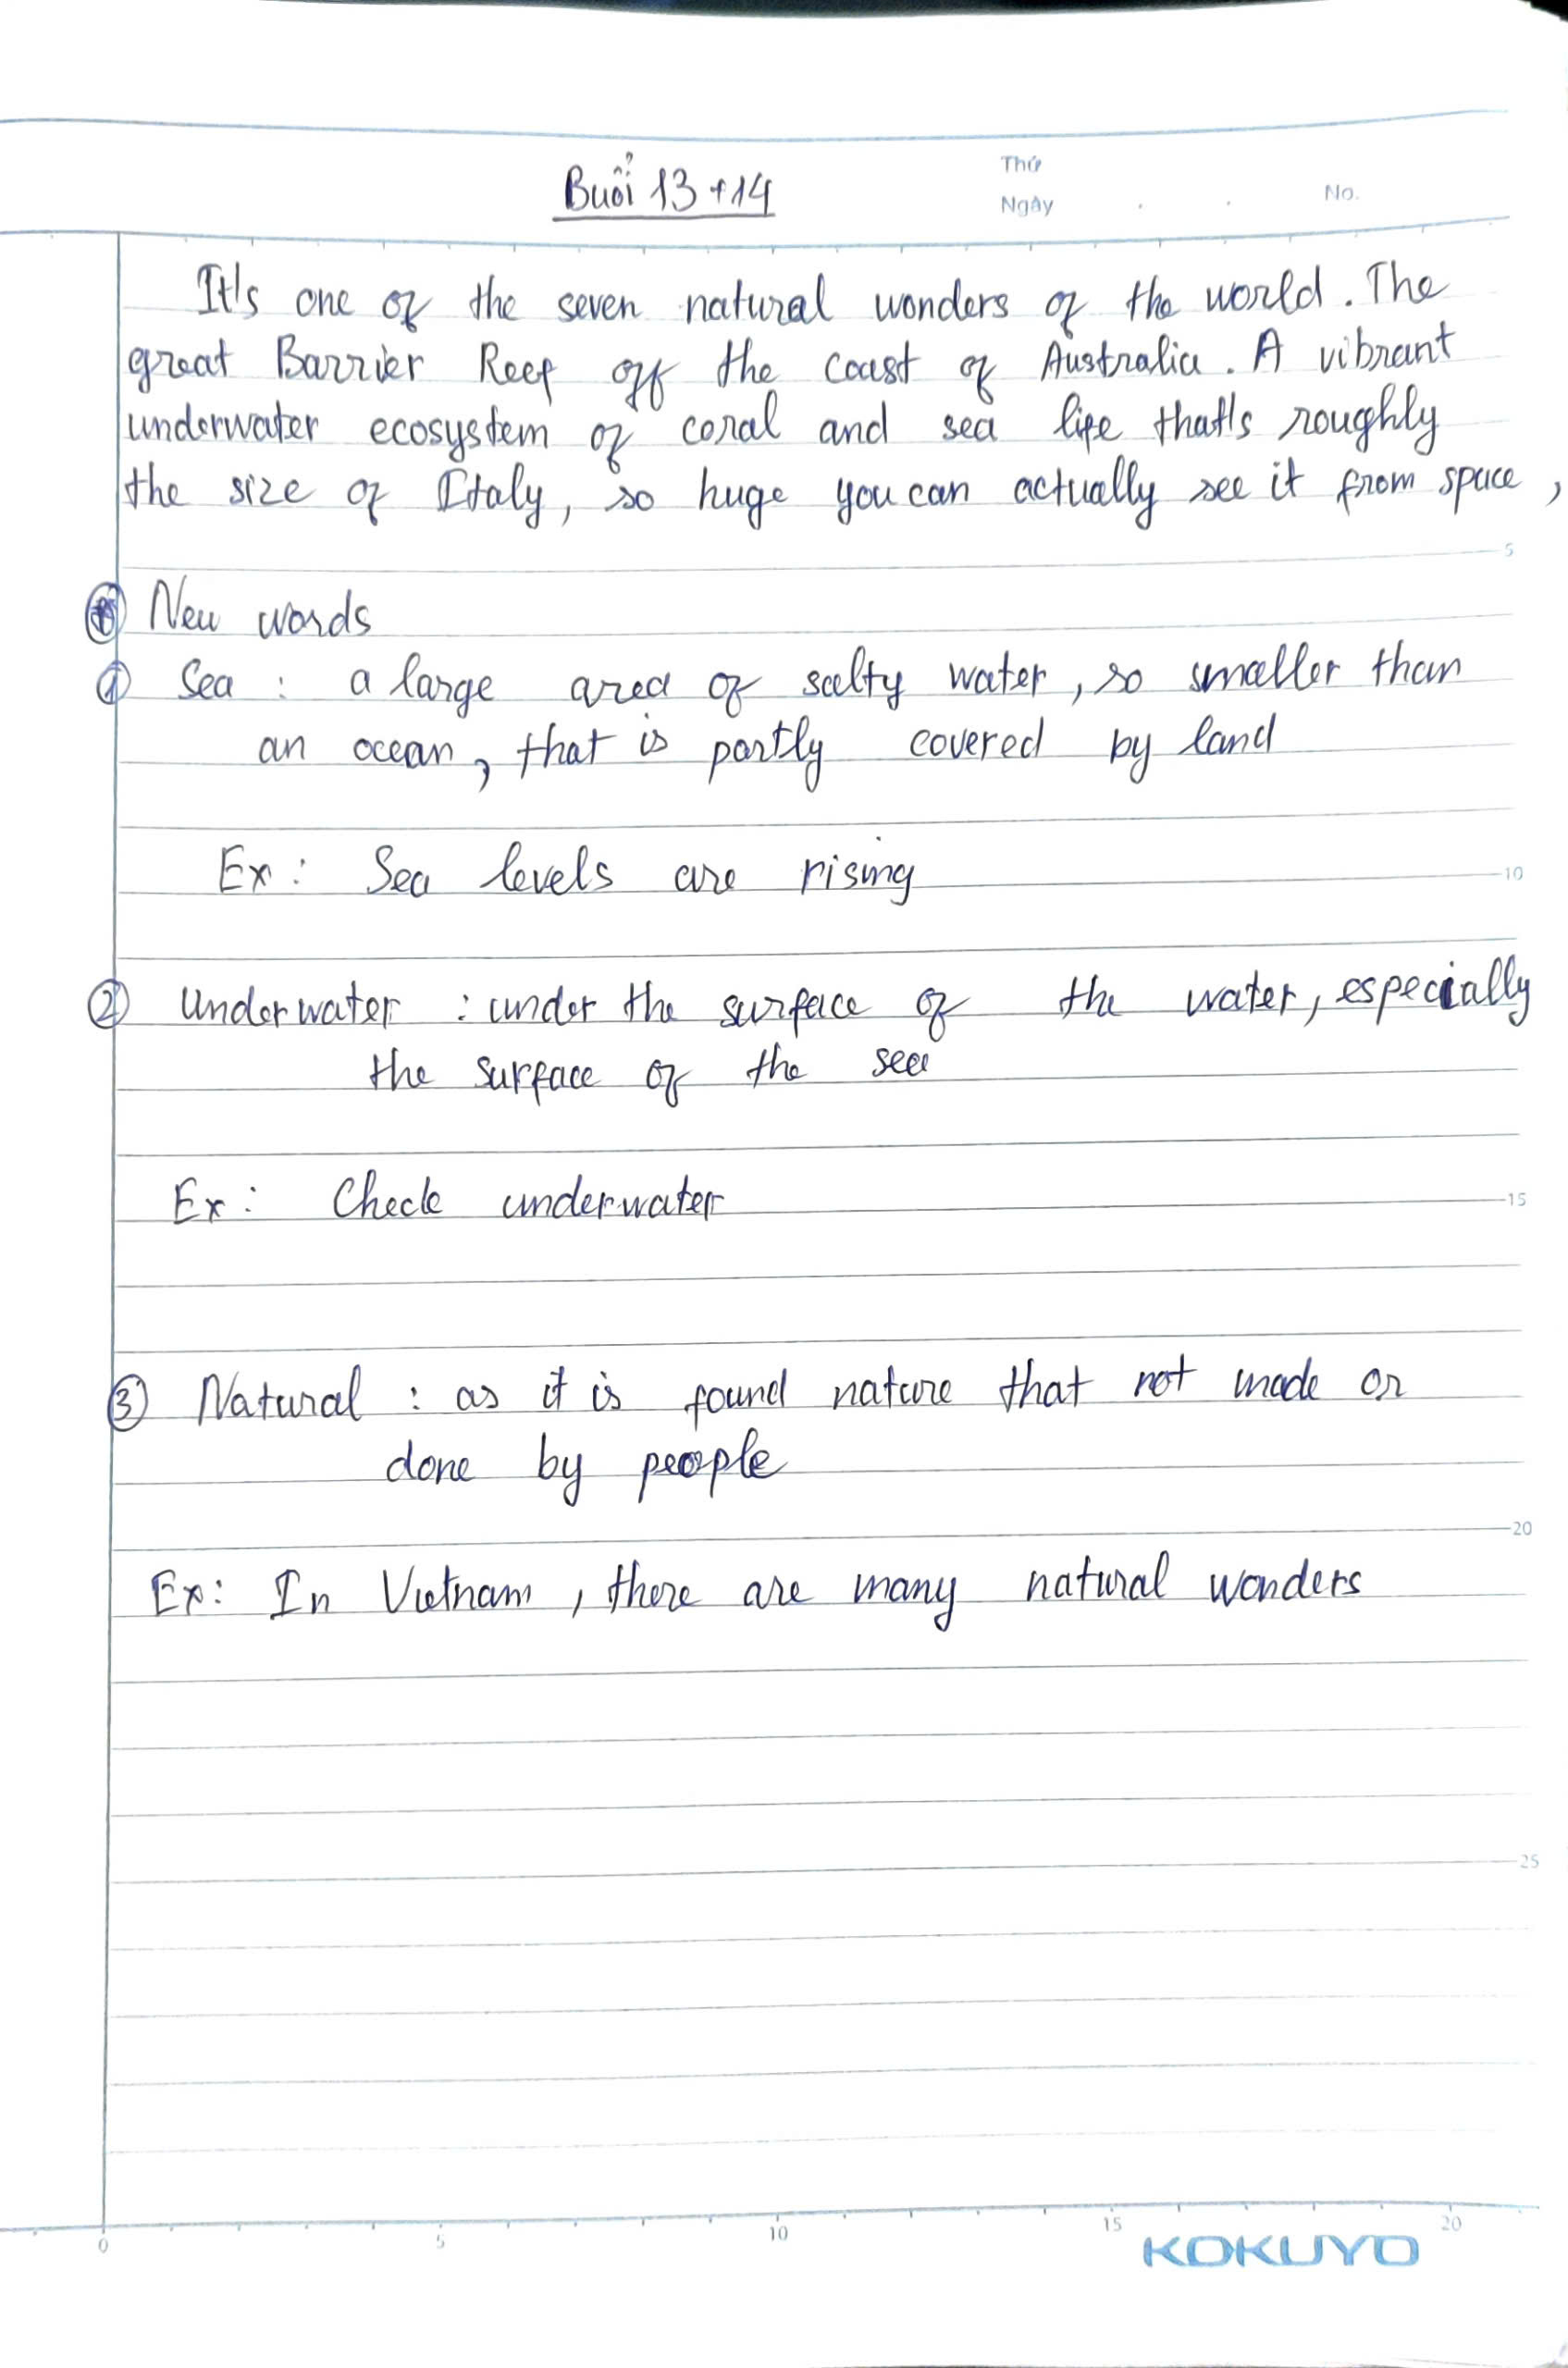 Buổi 13 + 14
Thứ
Ngày . . No.
It's one of the seven natural wonders of the world. The
great Barrier Reef off the coast of Australia. A vibrant
underwater ecosystem of coral and sea life that's roughly
the size of Italy, so huge you can actually see it from space,
5
New words
① Sea : a large area of salty water, so smaller than
an ocean, that is partly covered by land
Ex: Sea levels are rising
10
② Underwater : under the surface of the water, especially
the surface of the sea
Ex: Check underwater
15
③ Natural : as it is found nature that not made or
done by people
20
Ex: In Vietnam, there are many natural wonders
25
0 5 10 15 20
KOKUYO